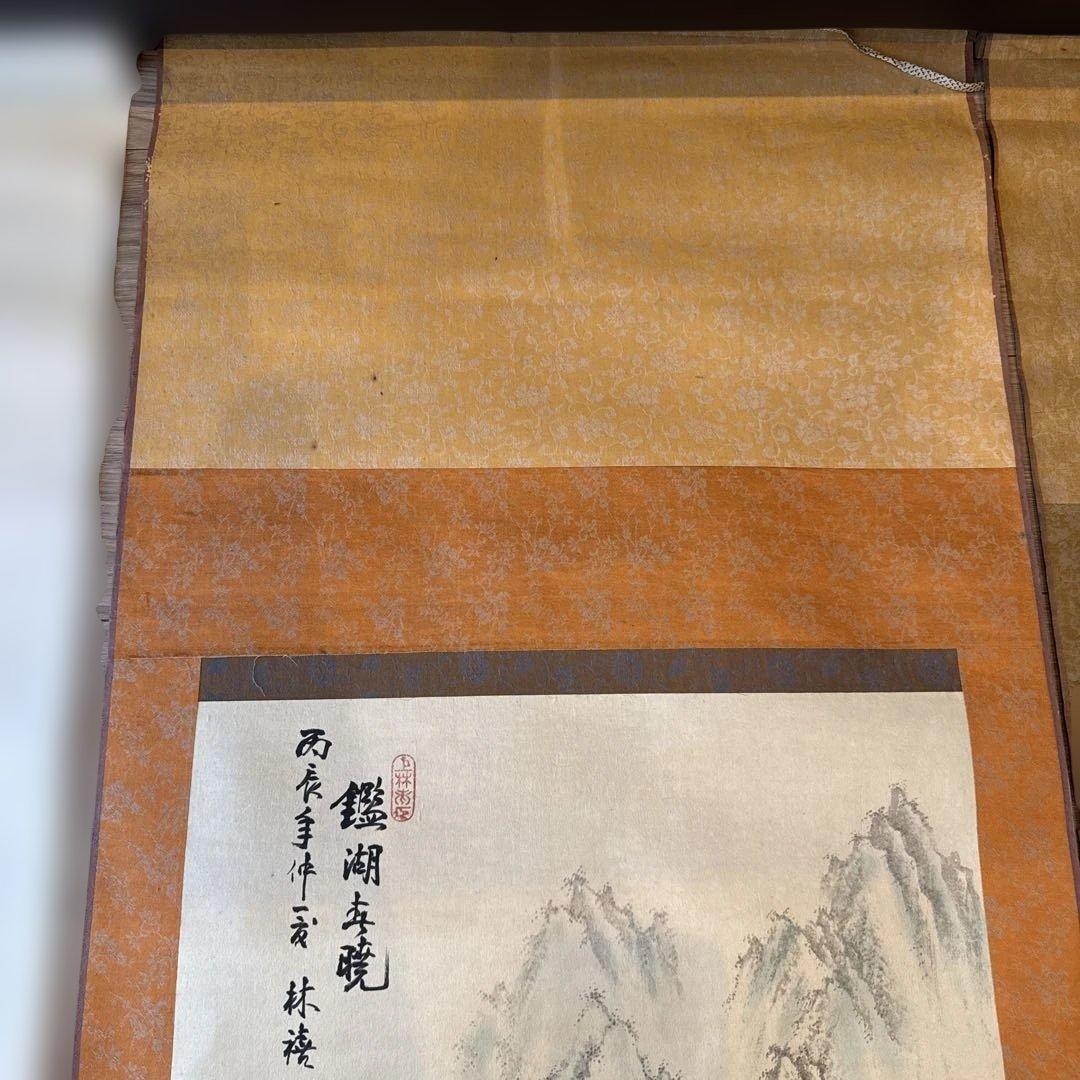 鑑湖春曉
丙辰年仲夏 林禧